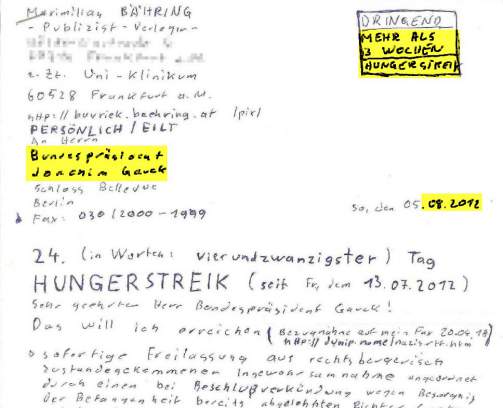 Maximilian BÄHRING
- Publizist - Verleger -
z. Zt. Uni - Klinikum
60528 Frankfurt a.M.
http://buvriek.baehring.at /pir/
PERSÖNLICH / EILT
An Herrn
Bundespräsident
Joachim Gauck
Schloss Bellevue
Berlin
Fax: 030/2000-1999
DRINGEND
MEHR ALS
3 WOCHEN
HUNGERSTREIK
So, den 05.08.2012
24. (in Worten: vierundzwanzigster) Tag
HUNGERSTREIK (seit Fr, dem 13.07.2012)
Sehr geehrter Herr Bundespräsident Gauck!
Das will ich erreichen (Bezugnahme auf mein Fax 20.04.
http://dynip.name/nazis.rtf.htm
sofortige Freilassung aus rechtsbergerisch
zustandegekommener Ingewahrsamnahme angeordnet
durch einen bei Beschlußverkündung wegen Besorgnis
der Befangenheit bereits abgelehnten Richter